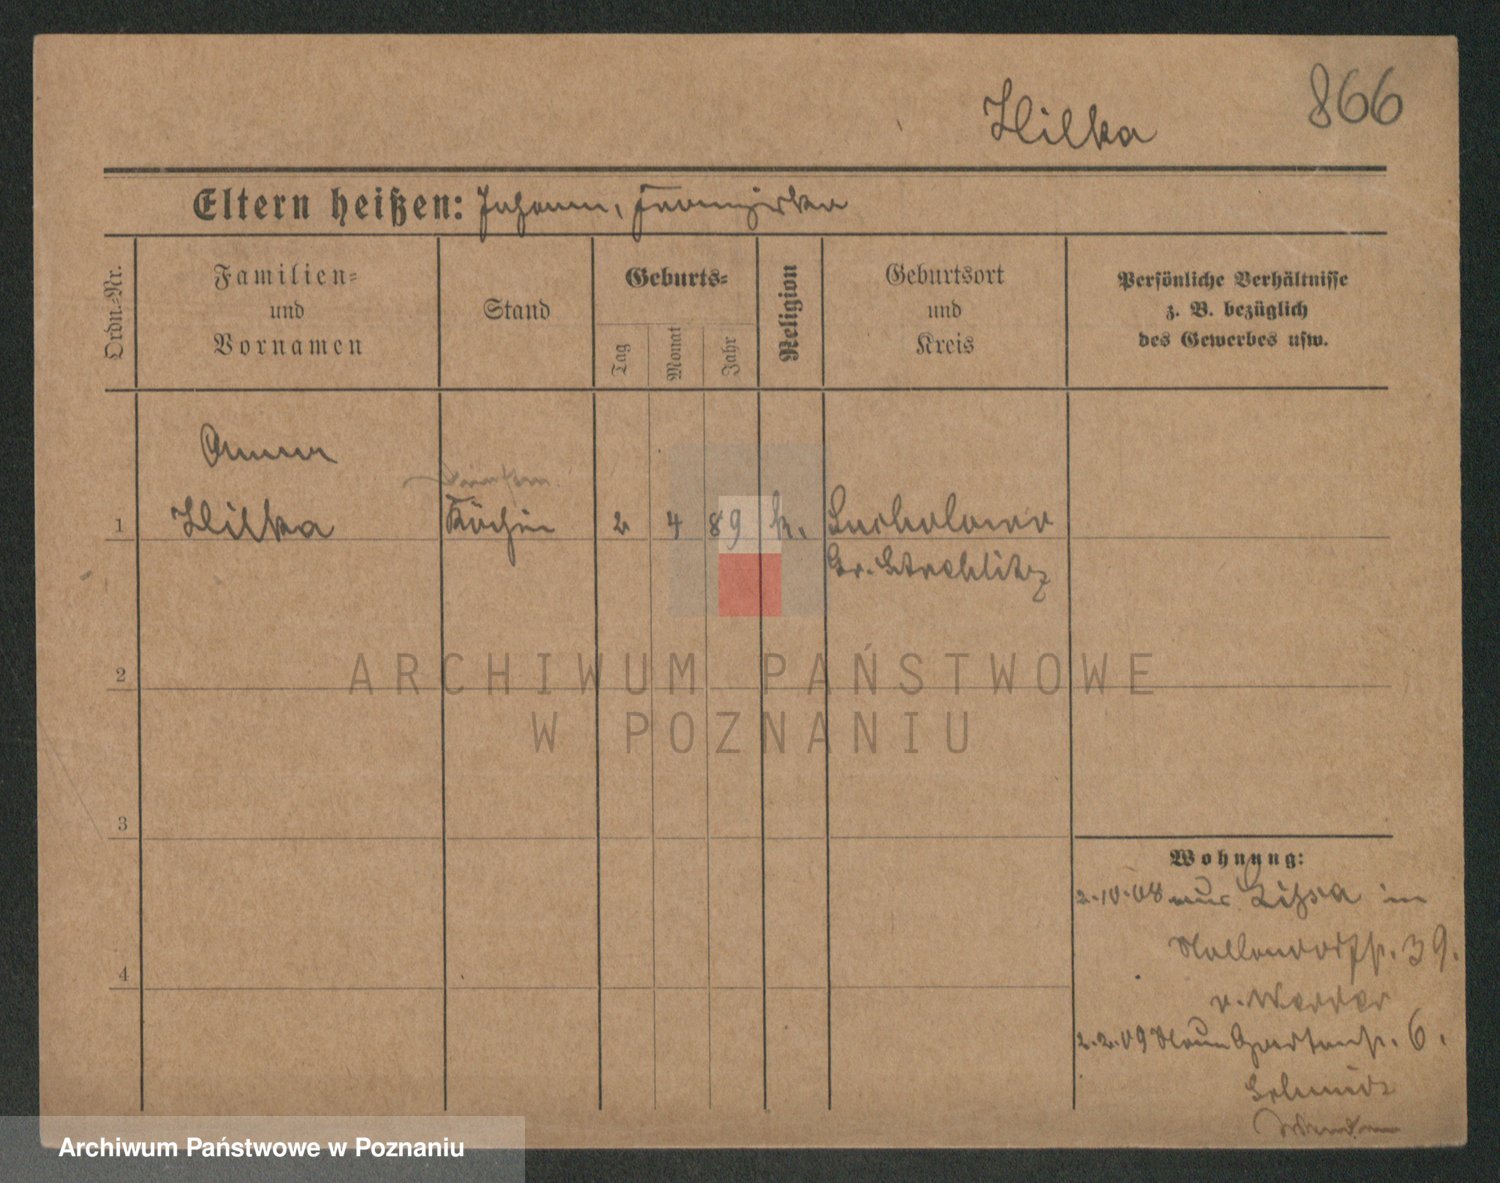 866
Hilka
Eltern heißen: Johann, Franziska
Ordn.-Nr.
Familien-
und
Vornamen
Stand
Geburts-
Tag
Monat
Jahr
Religion
Geburtsort
und
Kreis
Persönliche Verhältnisse
z. B. bezüglich
des Gewerbes usw.
Anna
1 Hilka Köchin 2 4 89 k. Sucholona
Gr. Strehlitz
2
3
4
Wohnung:
2.10.08 aus Lissa in
39.
v. Werder
2.2.09 Neue Gartenstr. 6.
Schmidt
ARCHIWUM PAŃSTWOWE
W POZNANIU
Archiwum Państwowe w Poznaniu